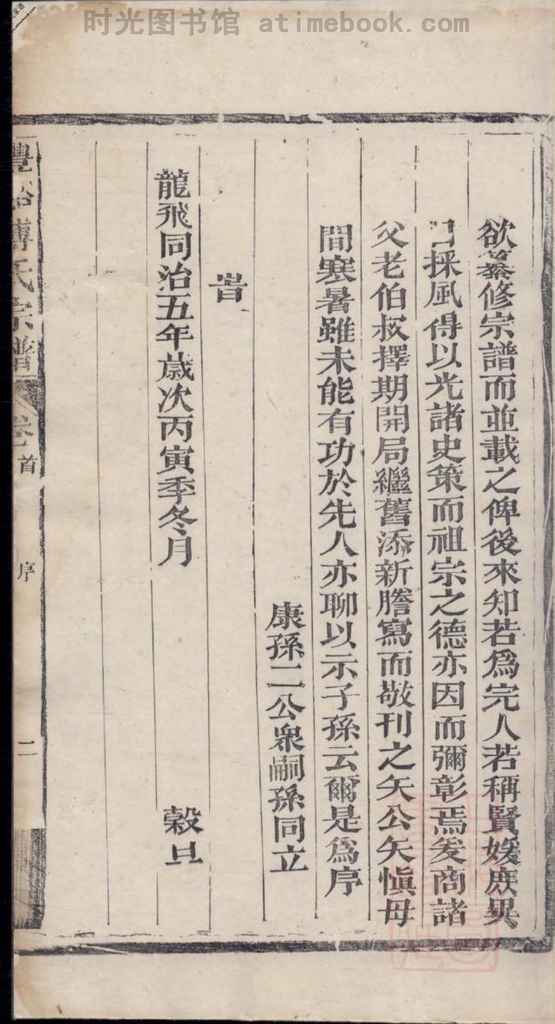 时光图书馆 atimebook.com
欲纂修宗譜而並載之俾後來知若爲完人若稱賢媛庶異
日採風得以光諸史策而祖宗之德亦因而彌彰焉爰商諸
父老伯叔擇期開局繼舊添新謄寫而敬刊之矢公矢愼毋
間寒暑雖未能有功於先人亦聊以示子孫云爾是爲序
康孫二公衆嗣孫同立
旹
龍飛同治五年歲次丙寅季冬月 穀旦
傅氏宗譜 卷首 序 二